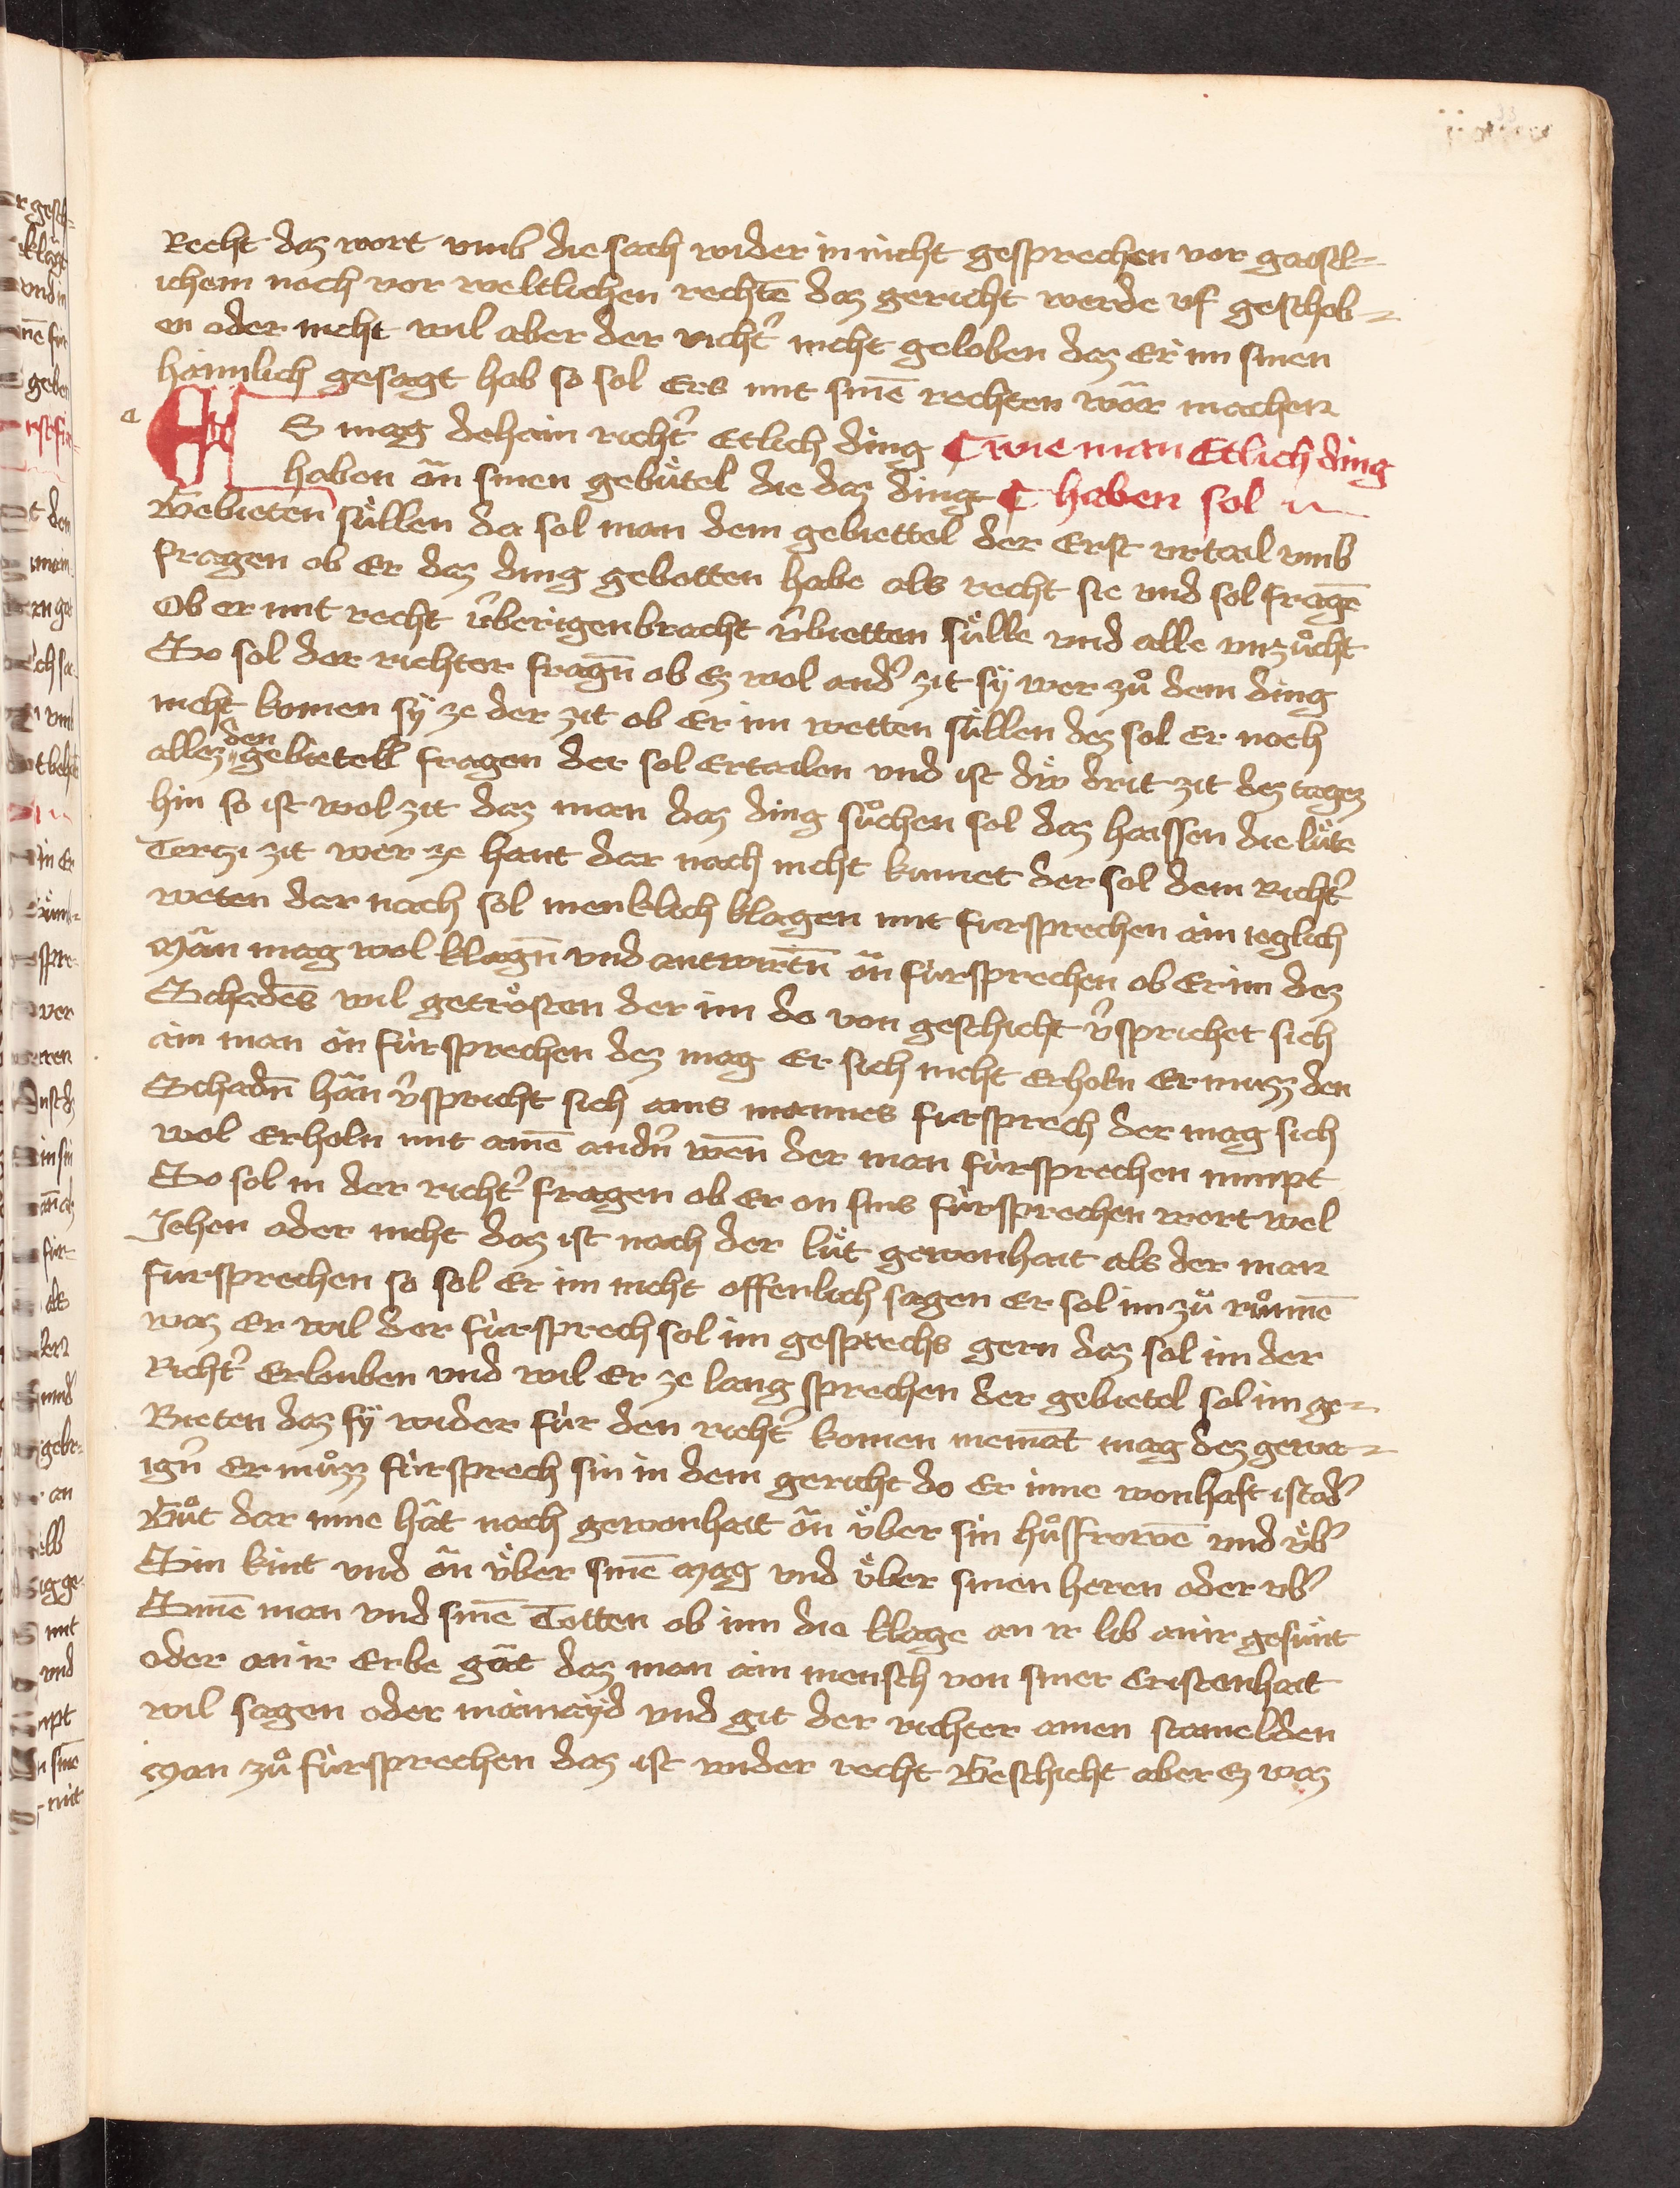 Recht daz wort vmb die sach wider in nicht gesprechen vor gaistl-
ichem noch vor weltlichen rechtē daz gericht werde vf geschob-
en oder nicht wil aber der richt̉ nicht geloben daz Er im sinen
haimlich gesagt hab so sol Ers mit sinē rechten wār machen
ES mag dehain richt̉ Etlich ding ¶ wie man Etlich ding
haben ān sinen gebüttel die daz ding ¶ haben sol
Gebieten süllen da sol man dem gebiettel der Erst vrtail vmb
fragen ob Er daz ding gebotten habe als recht sie vnd sol fragē
Ob er mit recht v̉berigenbracht v̉bietten sülle vnd alle vnzůcht
So sol der richter fragn̄ ob Ez wol and̉ zit sÿ wer zů dem ding
nicht komen sÿ ze der zit ob Er im wetten süllen dez sol Er noch
allez den gebietell fragen der sol Ertailen vnd ist dẅ drit zit dez tagez
hin so ist wol zit daz man daz ding sůchen sol daz haissen die lüte
Tertzi zit wer ze hant dar nach nicht kumet der sol dem Richt̉
weten dar nach sol menklich klagen mit fursprechen ain ieglich
Mān mag wol klagn̄ vnd antwurtn̄ ān fürsprechen ob Er im dez
Schadēs wil getrösten der im do von geschicht v̉sprichet sich
ain man ān fürsprechen dez mag Er sich nicht Erholn Er muzz den
Schadn̄ hān v̉spricht sich ains mannes fursprech der mag sich
wol Erholn mit ainē andn̉ wēn der man fürsprechen nimpt
So sol in der richt̉ fragen ob Er an sins fürsprechen wort wel
Jehen oder nicht daz ist nach der lüt gewonhait als der man
fursprechen so sol Er im nicht offenlich sagen Er sol im zů růnnē
waz Er wil der fürsprech sol im gesprechs gern daz sol im der
Richt̉ Erlauben vnd wil Er ze lang sprechen der gebietel sol im ge-
Bieten daz sÿ wider für den richt̉ komen niemāt mag dez gewa-
ign̉ Er můzz fürsprech sin in dem gericht do Er inne wonhaft ist od̉
Gůt dar inne hāt nach gewonhait ān über sin hůsfrowē vnd üb̉
Sin kint vnd ān über sinē Mag vnd über sinen heren oder vb̉
Sinē man vnd sinē Totten ob inn die klage an ir lib an ir gesünt
oder an ir Erbe gāt daz man ain mensch von siner Cristenhait
wil sagen oder mainayd vnd git der richter ainen stamelden
Man zů fürsprechen daz ist wider recht Geschicht aber Ez waz